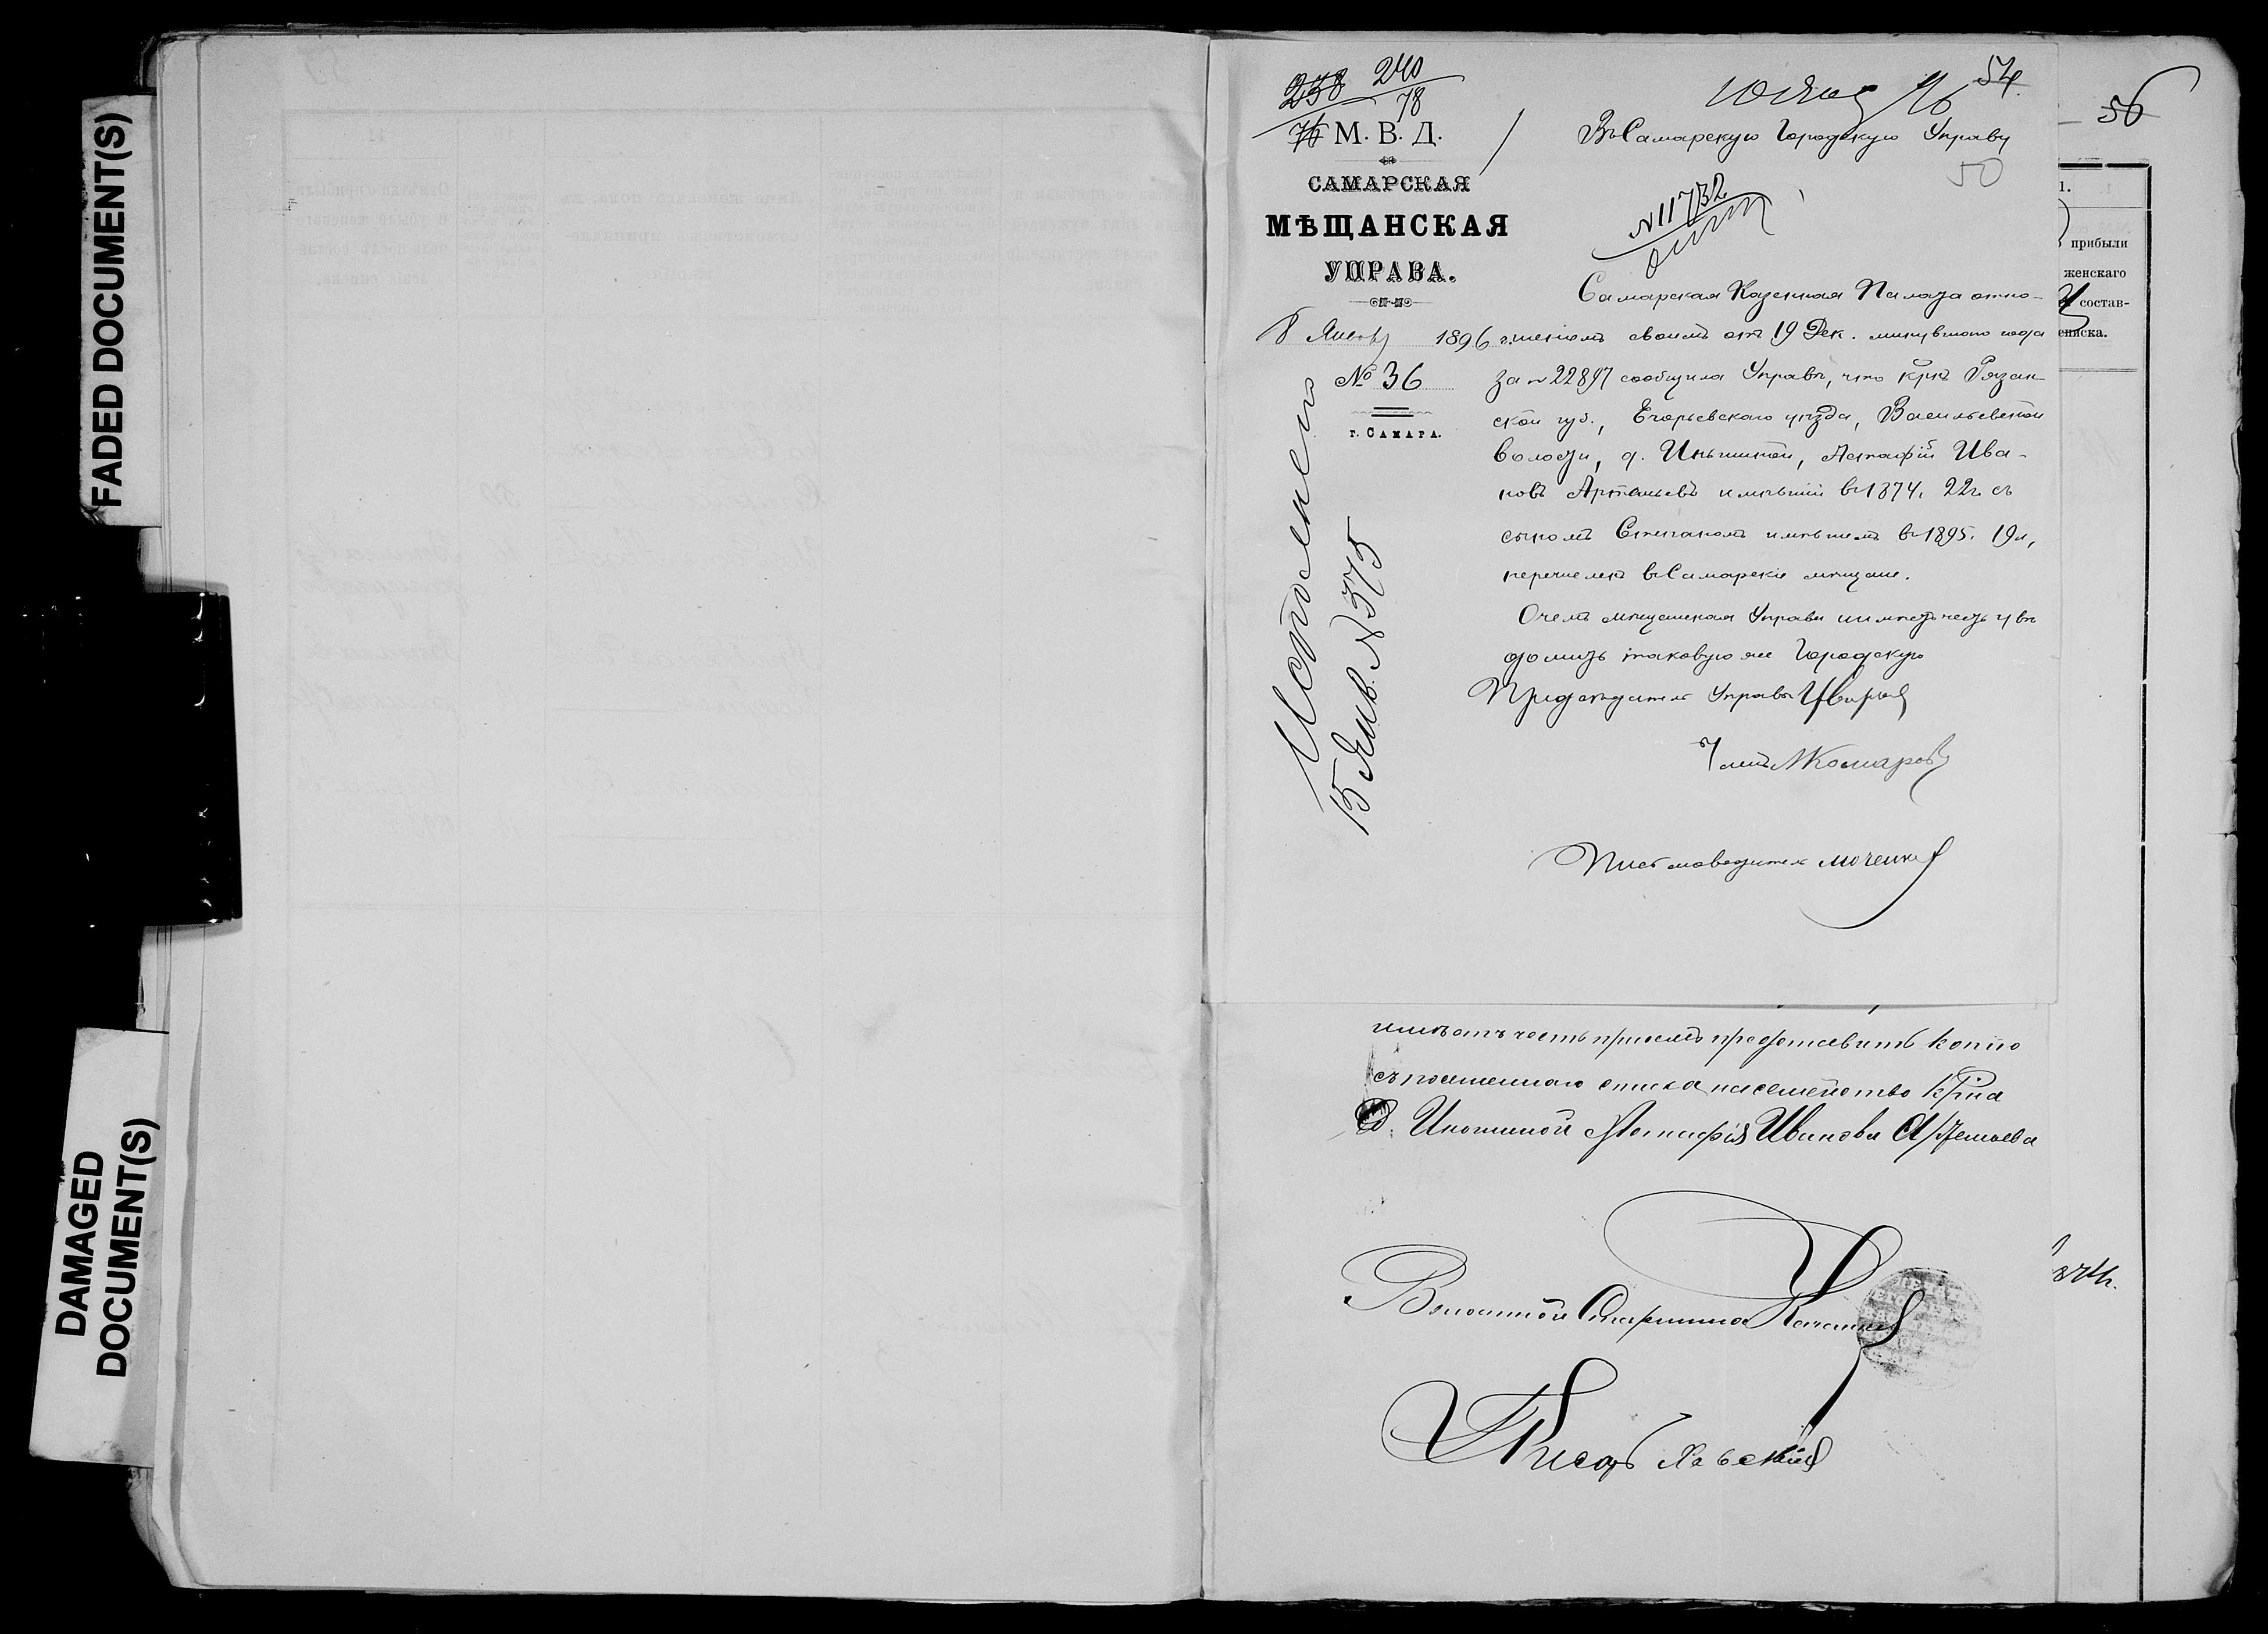 FADED DOCUMENT(S)
DAMAGED
DOCUMENT(S)
238 240
76 78
10 Янв 96
54.
56
50
М. В. Д.
САМАРСКАЯ
МѢЩАНСКАЯ
УПРАВА.
8 Янв 1896 г.
№ 36
г. САМАРА.
Исполнено
15 Янв. № 375
Въ Самарскую Городскую Управу
№ 11732
Самарская Казенная Палата отно-
шеніемъ своимъ отъ 19 Дек. минувшаго года
за № 22897 сообщила Управѣ, что кр-нъ Рязан-
ской губ., Егорьевскаго уѣзда, Васильевской
волости, д. Иньшиной, Астафій Ива-
новъ Артемьевъ имѣвшій въ 1874г. 22г. съ
сыномъ Степаномъ имѣвшемъ въ 1895г. 19л,
перечисленъ въ Самарскіе мѣщане.
О чемъ мѣщанская Управа имѣетъ честь увѣ
домить таковую же Городскую
Предсѣдатель Управы
Членъ Комаровъ
Письмоводитель
имѣетъ честь присемъ представить копію
съ посемейнаго списка на семейство кр-на
д. Иньшиной Астафія Иванова Артемьева
Волостной Старшина
Писарь
1.
прибыли
женскаго
состав-
списка.